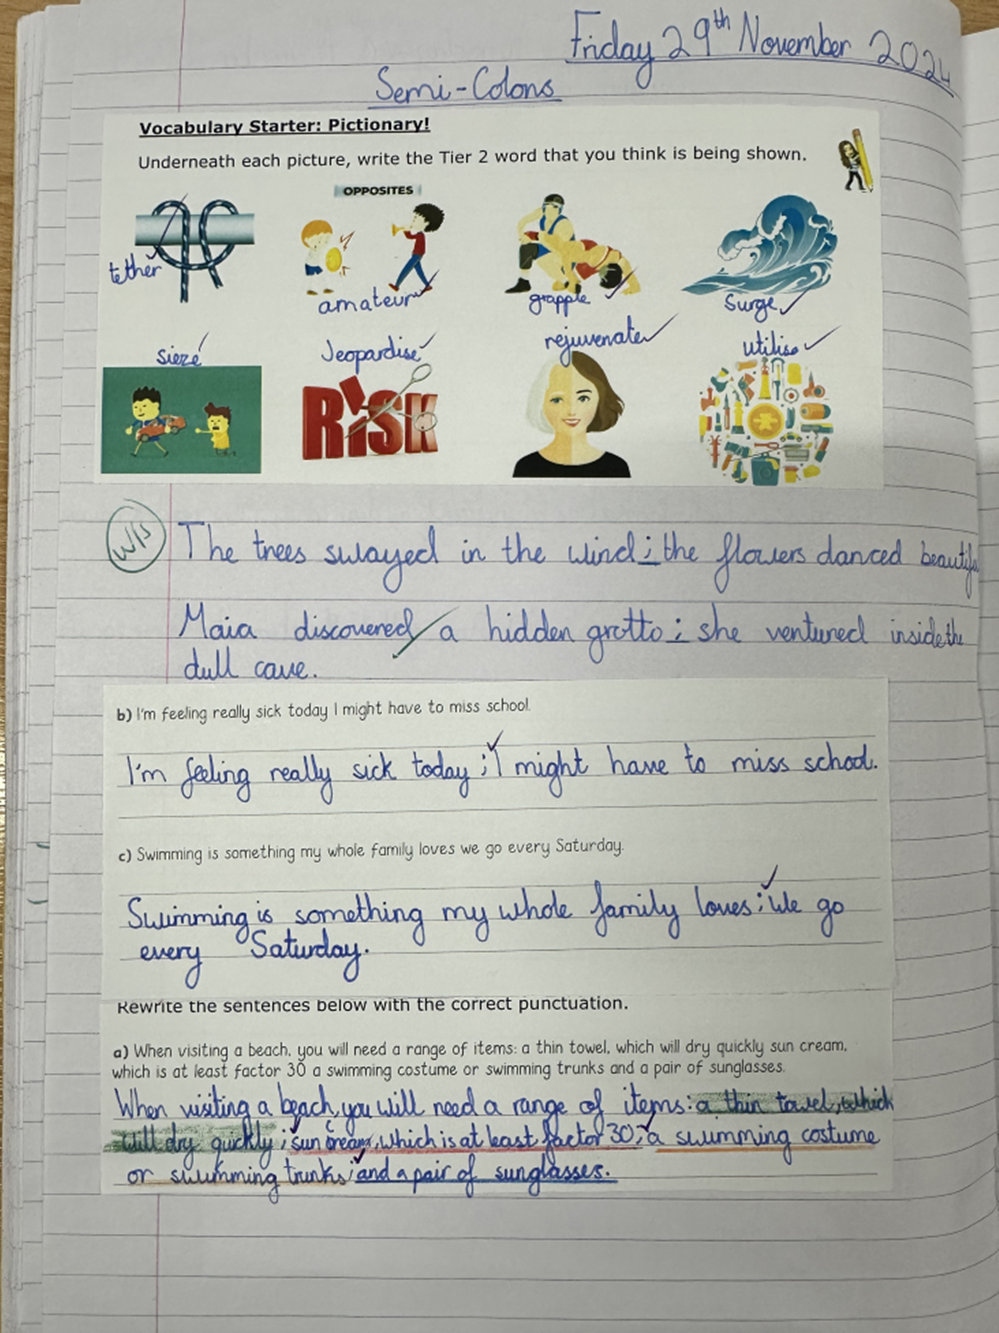 Friday 29th November 2024
Semi-Colons
Vocabulary Starter: Pictionary!
Underneath each picture, write the Tier 2 word that you think is being shown.
OPPOSITES
tether
amateur
grapple
Surge
sieze
Jeopardise
rejuvenate
utilise
RiSK
W/S
The trees swayed in the wind; the flowers danced
Maia discovered a hidden grotto; she ventured inside the
dull cave.
b) I'm feeling really sick today I might have to miss school.
I'm feeling really sick today; I might have to miss school.
c) Swimming is something my whole family loves we go every Saturday.
Swimming is something my whole family loves; We go
every Saturday.
Rewrite the sentences below with the correct punctuation.
a) When visiting a beach, you will need a range of items: a thin towel, which will dry quickly sun cream,
which is at least factor 30 a swimming costume or swimming trunks and a pair of sunglasses.
When visiting a beach, you will need a range of items: a thin towel, which
will dry quickly; sun cream, which is at least factor 30; a swimming costume
or swimming trunks; and a pair of sunglasses.